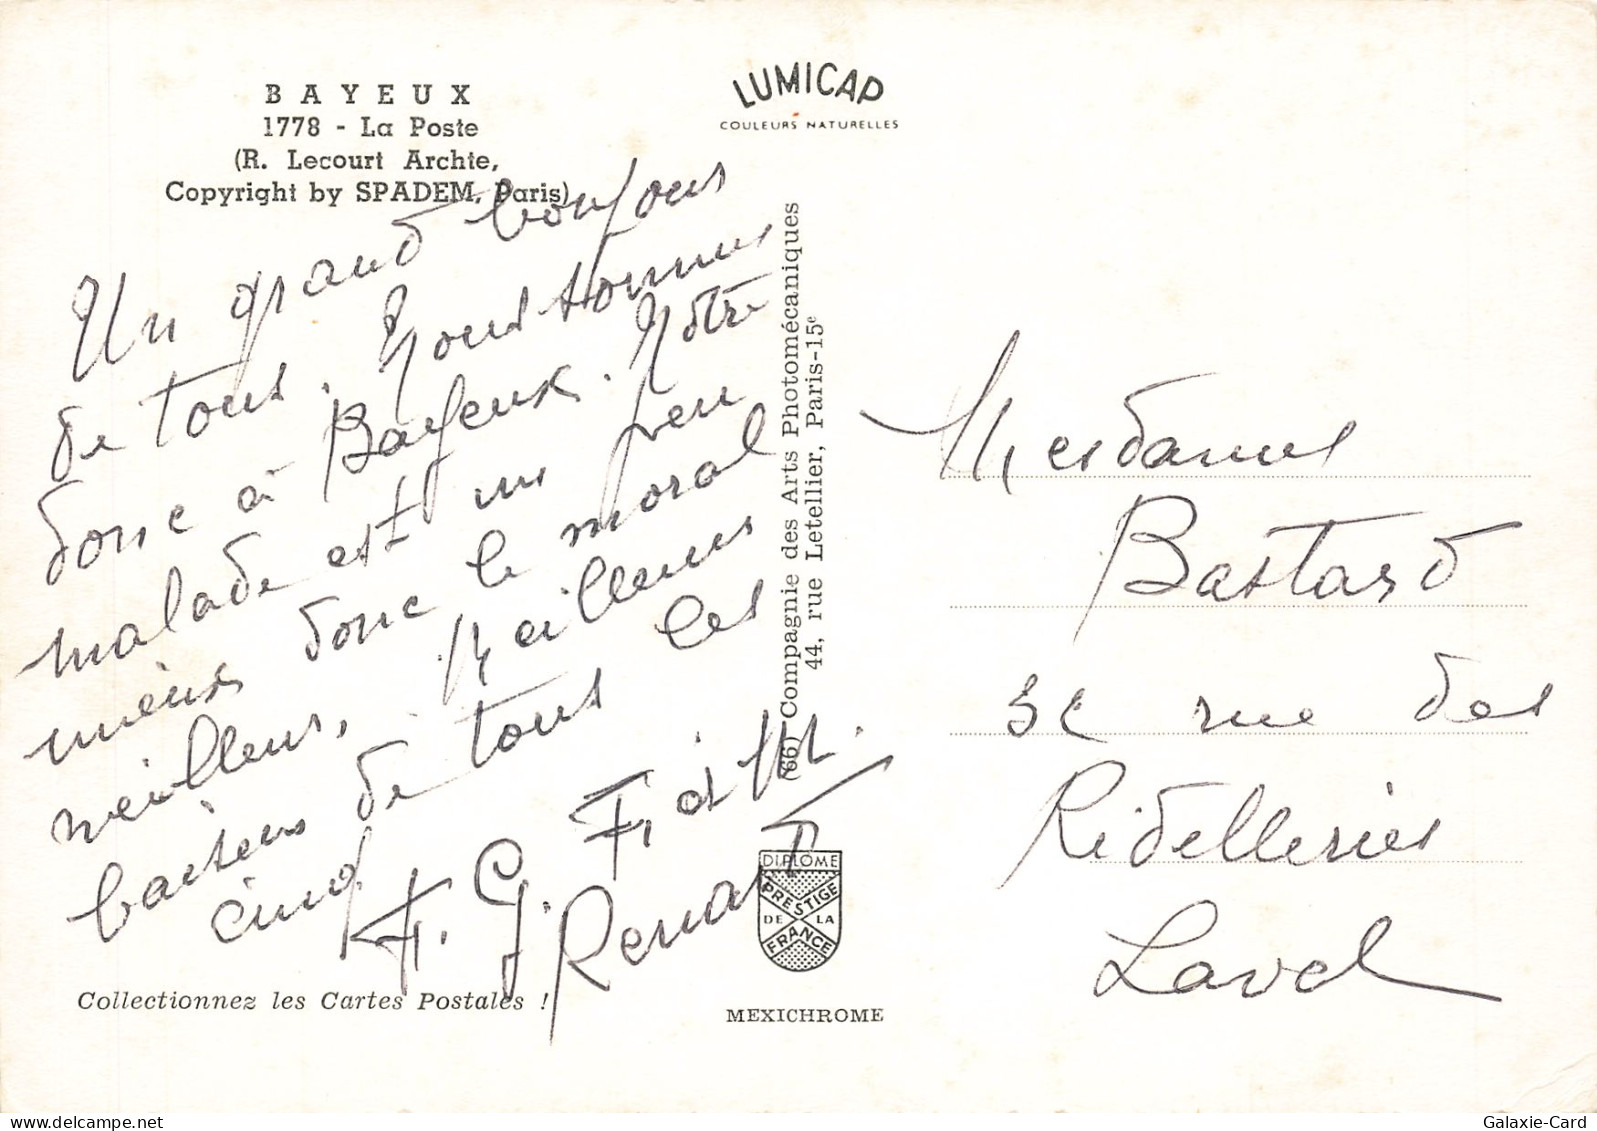 BAYEUX
1778 - La Poste
(R. Lecourt Archte,
Copyright by SPADEM, Paris)
LUMICAP
COULEURS NATURELLES
Un grand bonjour
de tous. Nous sommes
donc à Bayeux. Notre
malade est un peu
mieux donc le moral
meilleur. Meilleurs
baisers de tous les
cinq.
F. G. F. et M.
Renard
Collectionnez les Cartes Postales !
(66) Compagnie des Arts Photomécaniques
44, rue Letellier, Paris-15e
DIPLOME
PRESTIGE
DE LA
FRANCE
MEXICHROME
Mesdames
Bastard
rue des
Ridelleries
Laval
Galaxie-Card